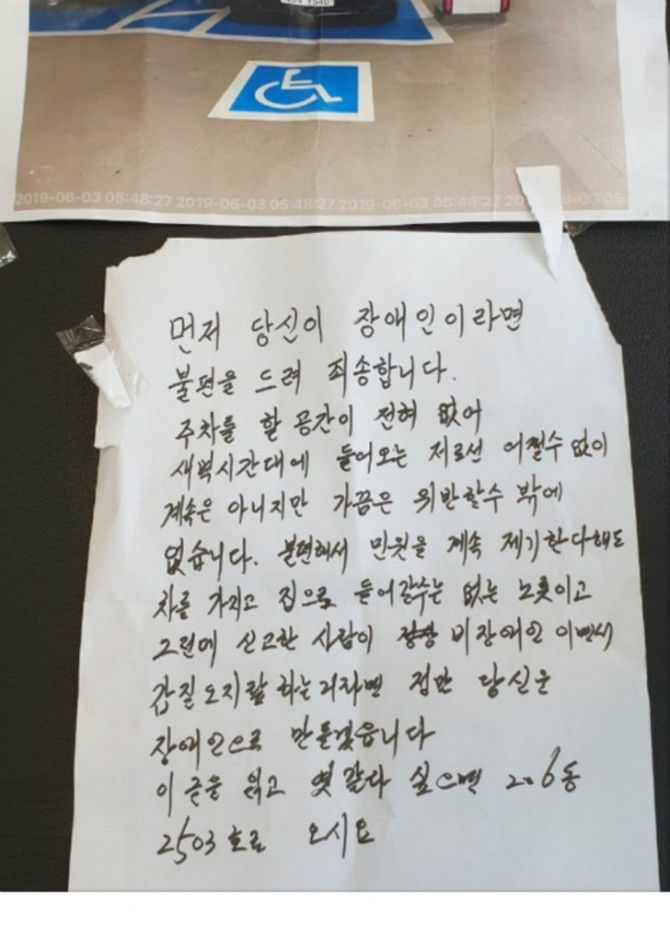 2019-06-03 05:48:27 2019-06-03 05:48:27 2019-06-03 05:48:27 20 -06-03 05
먼저 당신이 장애인이라면
불편을 드려 죄송합니다.
주차를 할 공간이 전혀 없어
새벽시간대에 들어오는 저로선 어쩔수 없이
계속은 아니지만 가끔은 위반할수 밖에
없습니다. 불편해서 민원을 계속 제기한다해도
차를 가지고 집으로 들어갈수는 없는 노릇이고
그런데 신고한 사람이 비장애인 이면서
갑질 오지랖 하는거라면 당신은
장애인으로 만들겠읍니다
이 글을 읽고 엿같다 싶으면 206동
2503호로 오시오